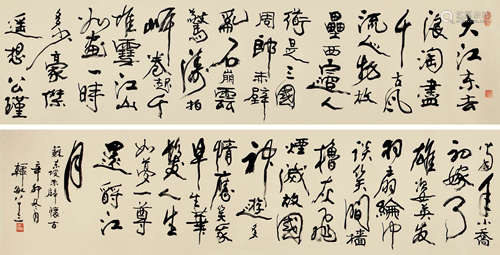 大江東去
浪淘盡
千古風
流人物故
壘西邊人
道是三國
周郎赤壁
亂石崩雲
驚濤拍
岸卷起千
堆雪江山
如畫一時
多少豪傑
遙想公瑾
當年小喬
初嫁了
雄姿英發
羽扇綸巾
談笑間檣
櫓灰飛
煙滅故國
神遊多
情應笑我
早生華
髮人生
如夢一尊
還酹江
月
蘇軾赤壁懷古
辛卯夏月
韓敏八十三